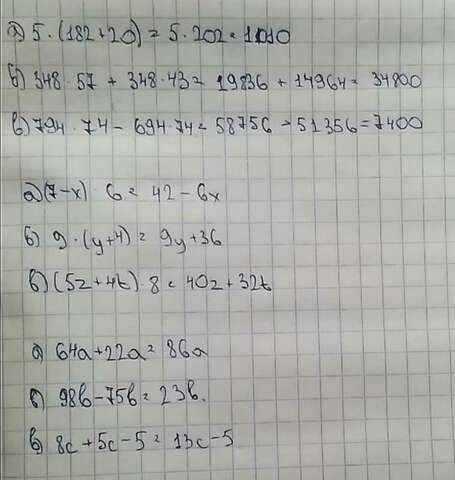 а) 5 · (182 + 20) = 5 · 202 = 1010
б) 348 · 57 + 348 · 43 = 19836 + 14964 = 34800
в) 794 · 74 - 694 · 74 = 58756 - 51356 = 7400
а) (7 - x) · 6 = 42 - 6x
б) 9 · (y + 4) = 9y + 36
в) (5z + 4t) · 8 = 40z + 32t
а) 64a + 22a = 86a
б) 98b - 75b = 23b.
в) 8c + 5c - 5 = 13c - 5